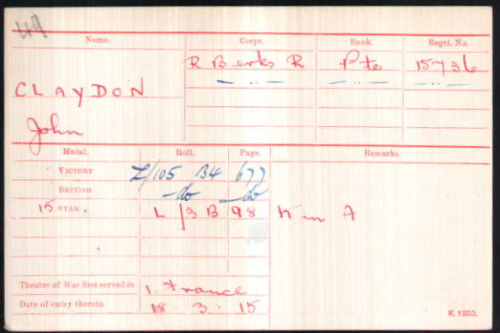 Name. Corps. Rank Regtl. No.
CLAYDON R Berks R Pte 15736
John — " — — " —
Medal. Roll. Page. Remarks.
VICTORY L/105 B4 677
BRITISH -do- -do-
15 STAR. L/3 B 98 K in A
Theatre of War first served in 1. France
Date of entry therein 18. 3. 15
K. 1380.